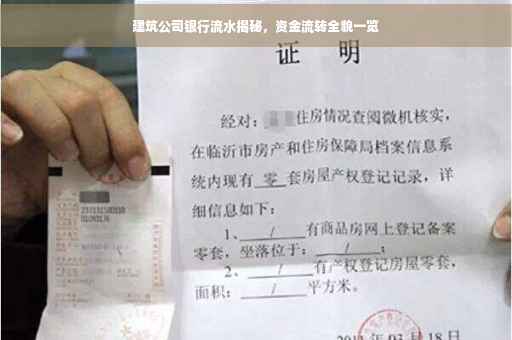 建筑公司银行流水揭秘，资金流转全貌一览
证 明
经对：住房情况查阅微机核实，
在临沂市房产和住房保障局档案信息系
统内现有 零 套房屋产权登记记录，详
细信息如下：
1、 / 有商品房网上登记备案
零套，坐落位于： / ；
2、 / 有产权登记房屋零套，
面积： / 平方米。
年 03 月 18 日